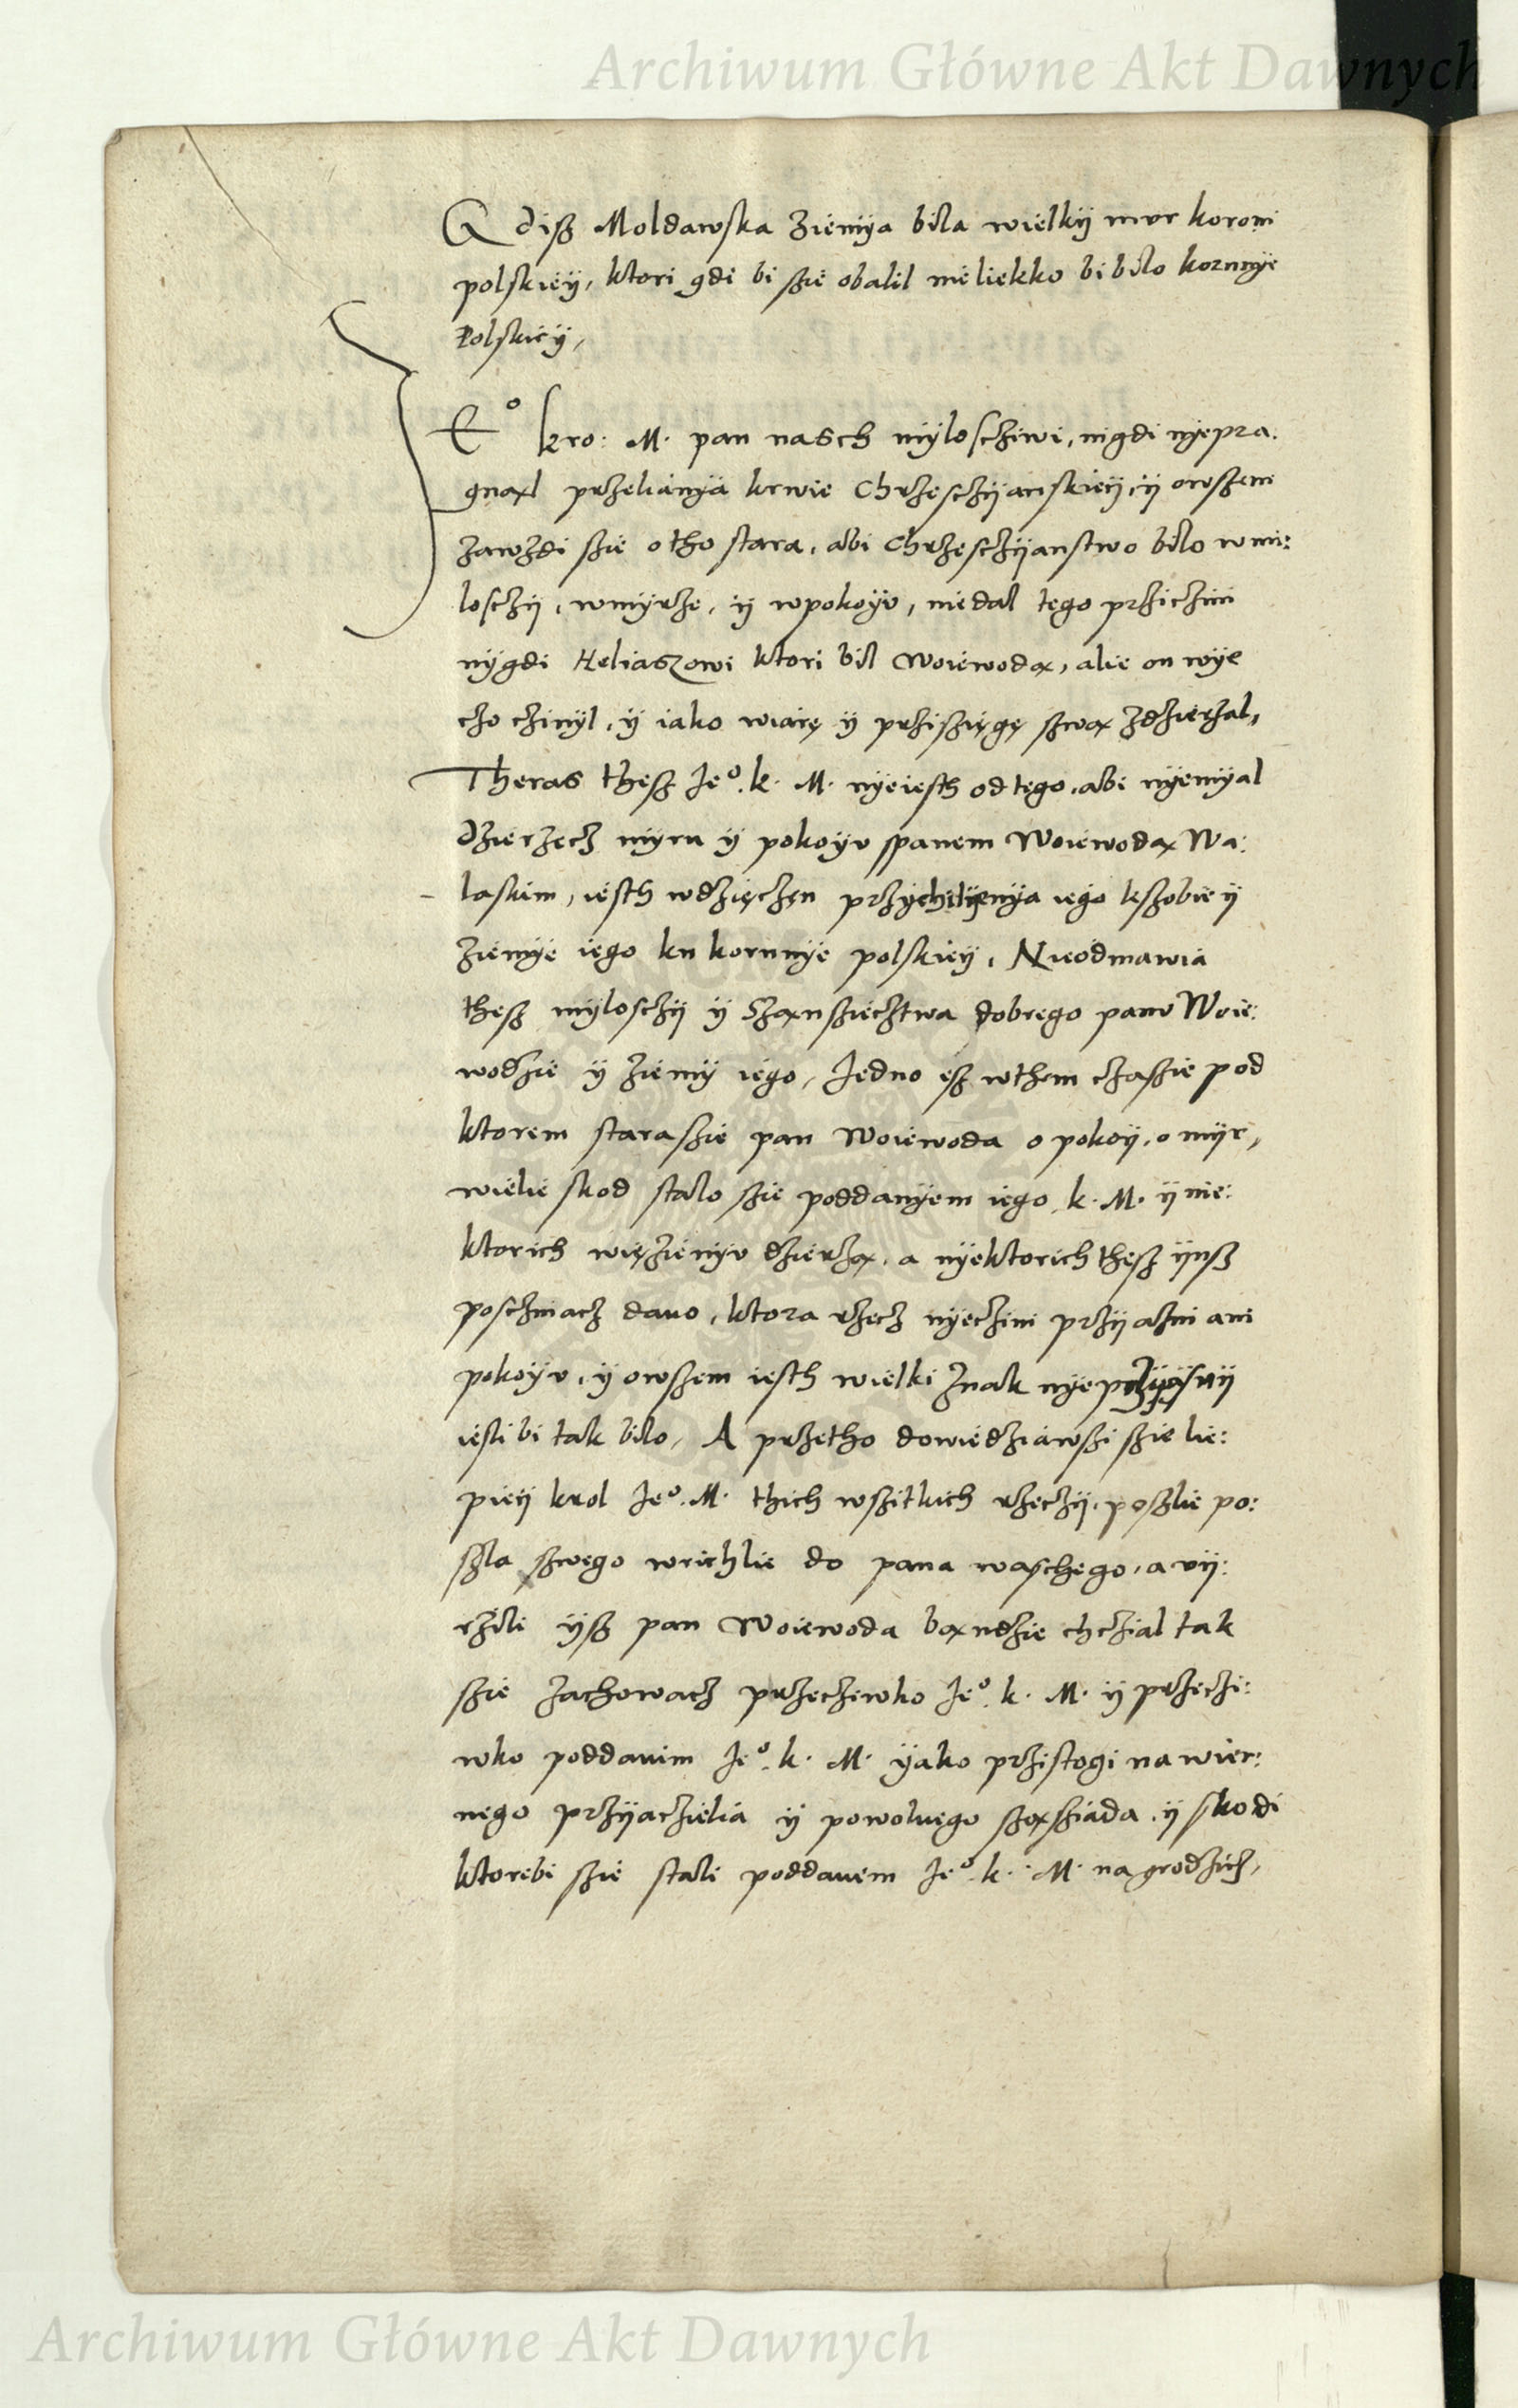 Archiwum Główne Akt Dawnych
Gdisz Moldawska Ziemya bila wielkÿ mvr koroni
polskieÿ, ktori gdi bi szie obalil nieliekko bi bilo korunnÿe
Polskieÿ,
Eº kro: M. pan nasch mÿlosczivi, nigdi nÿepra:
gnaxl przelianÿa krwie Chrzesczÿanskieÿ, ÿ owszem
zawzdi szie o tho stara, abi Chrzesczÿanstwo bilo w mi:
losczÿ, w mÿrze, ÿ w pokoÿv, nie dal tego prziczini
nÿgdi Heliaszowi ktori bil Woiewodax, alie on wÿe
czo czinÿl, ÿ iako wiarę ÿ prziszięgę szwax zdzierzal,
Theras thesz Jeº. k. M. nÿe iesth od tego, abi nÿemÿal
dzierzecz mÿru ÿ pokoÿv spanem Woiewodax Wa:
laskim, iesth wdzięczęn przÿchilÿenÿa iego kszobie ÿ
Ziemÿe iego ku korunnÿe polskieÿ, Nieodmawia
thesz mÿlosczÿ ÿ szaxnsziecztwa dobrego panv Woie:
wodzie ÿ ziemÿ iego, Jedno esz wthem czaszie pod
ktorem stara szie pan Woiewoda o pokoÿ, o mÿr,
wielie skod stalo szie poddanÿem iego k. M. ÿ nie:
ktorich więzienÿv dzierzax, a nÿektorich thesz ÿusz
posczinacz dano, ktora rzecz nÿeczini przÿazni ani
pokoÿv, ÿ owszem iesth wielki znak nÿeprzÿÿasnÿ
iesli bi tak bilo, A przetho dowiedziawszi szie lie:
pieÿ krol Jeº. M. thich wszitkich rzeczÿ, poszlie po:
szla szwego wrichlie do pana waschego, a vÿ:
rzili ÿsz pan Woiewoda baxndzie chczial tak
szie zachowacz przecziwko Jeº. k. M. ÿ przeczi:
wko poddanim Jeº. k. M. ÿako przistogi na wier:
nego przÿaczielia ÿ powolnego szaxsziada, ÿ skodi
ktorebi szie stali poddanem Jeº. k. M. nagrodzicz,
Archiwum Główne Akt Dawnych